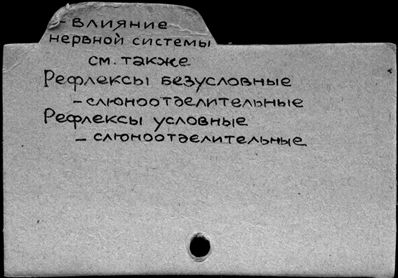 - Влияние
нервной системы
см. также
Рефлексы безусловные
- слюноотделительные
Рефлексы условные
- слюноотделительные